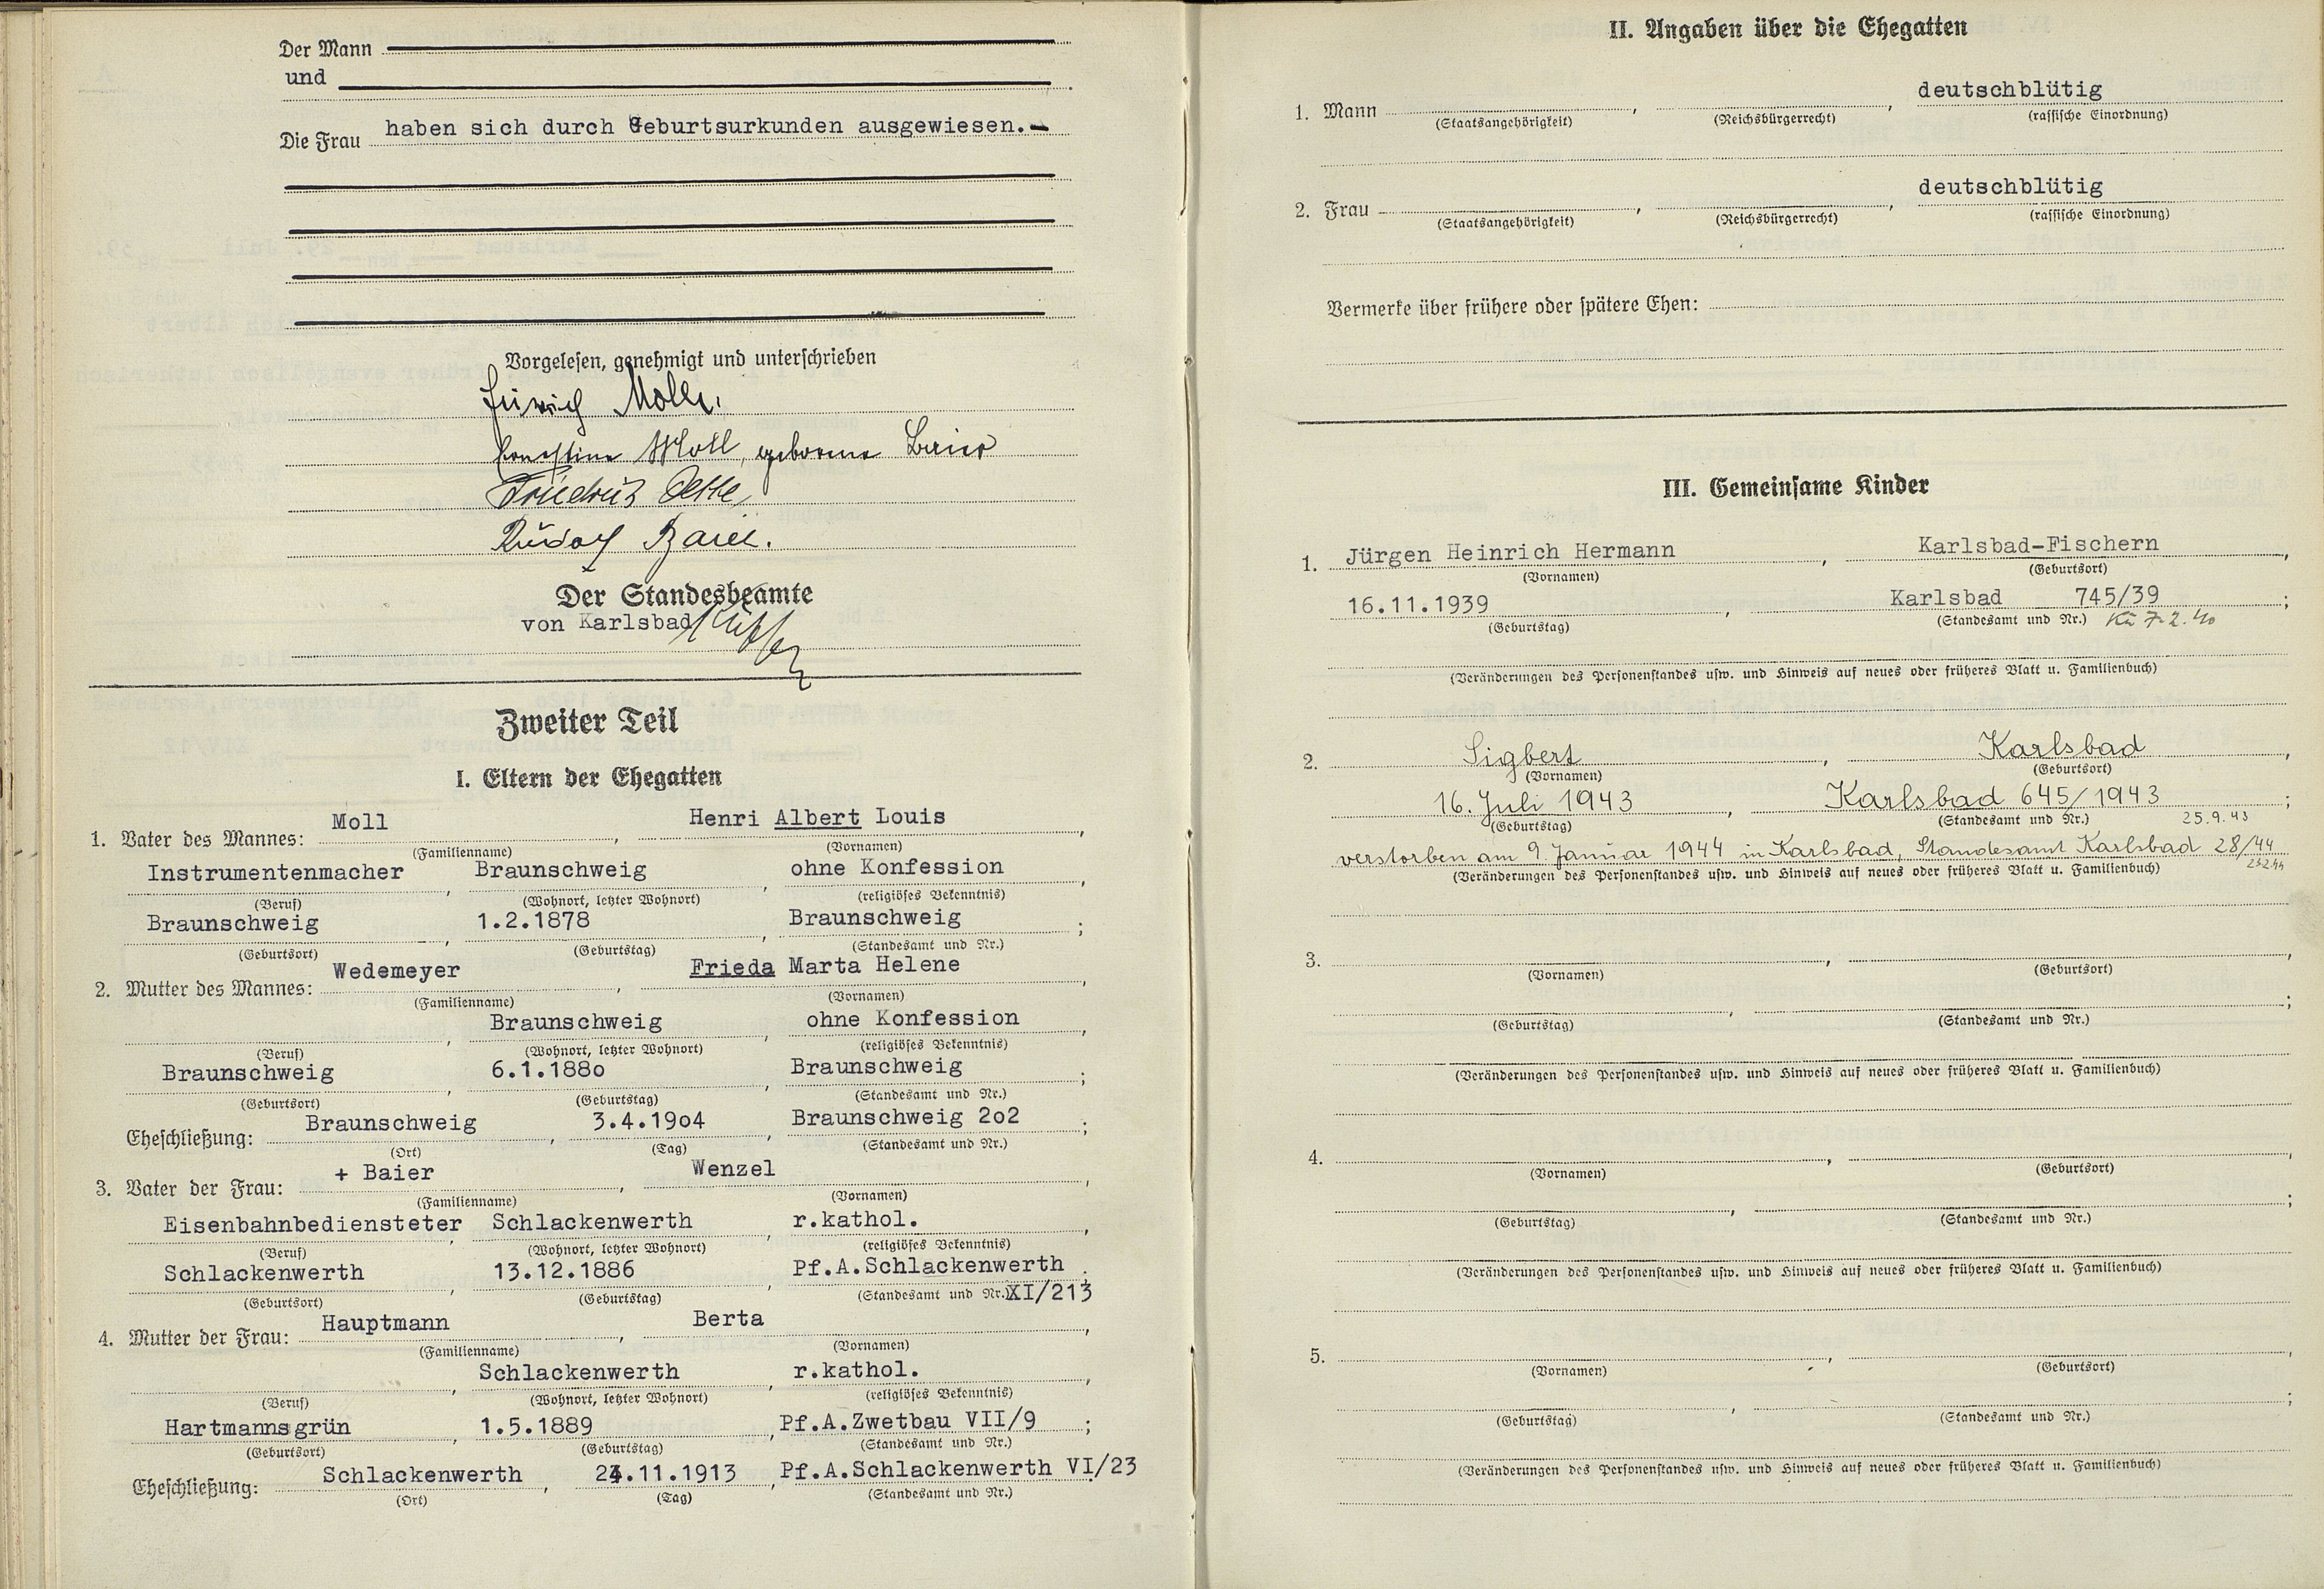 Der Mann
und
Die Frau haben sich durch Geburtsurkunden ausgewiesen.-
Vorgelesen, genehmigt und unterschrieben
Heinrich Moll.
Ernestine Moll, geborene Baier
Friedrich
Rudolf Baier.
Der Standesbeamte
von Karlsbad
Zweiter Teil
I. Eltern der Ehegatten
1. Vater des Mannes: Moll, Henri Albert Louis,
(Familienname) (Vornamen)
Instrumentenmacher, Braunschweig, ohne Konfession,
(Beruf) (Wohnort, letzter Wohnort) (religiöses Bekenntnis)
Braunschweig, 1.2.1878, Braunschweig;
(Geburtsort) (Geburtstag) (Standesamt und Nr.)
2. Mutter des Mannes: Wedemeyer, Frieda Marta Helene,
(Familienname) (Vornamen)
, Braunschweig, ohne Konfession,
(Beruf) (Wohnort, letzter Wohnort) (religiöses Bekenntnis)
Braunschweig, 6.1.188o, Braunschweig;
(Geburtsort) (Geburtstag) (Standesamt und Nr.)
Eheschließung: Braunschweig, 3.4.19o4, Braunschweig 2o2;
(Ort) (Tag) (Standesamt und Nr.)
3. Vater der Frau: + Baier, Wenzel,
(Familienname) (Vornamen)
Eisenbahnbediensteter, Schlackenwerth, r.kathol.,
(Beruf) (Wohnort, letzter Wohnort) (religiöses Bekenntnis)
Schlackenwerth, 13.12.1886, Pf.A.Schlackenwerth;
(Geburtsort) (Geburtstag) (Standesamt und Nr.) XI/213
4. Mutter der Frau: Hauptmann, Berta,
(Familienname) (Vornamen)
, Schlackenwerth, r.kathol.,
(Beruf) (Wohnort, letzter Wohnort) (religiöses Bekenntnis)
Hartmannsgrün, 1.5.1889, Pf.A.Zwetbau VII/9;
(Geburtsort) (Geburtstag) (Standesamt und Nr.)
Eheschließung: Schlackenwerth, .11.1913, Pf.A.Schlackenwerth VI/23
(Ort) (Tag) (Standesamt und Nr.)
II. Angaben über die Ehegatten
1. Mann , , deutschblütig
(Staatsangehörigkeit) (Reichsbürgerrecht) (rassische Einordnung)
2. Frau , , deutschblütig
(Staatsangehörigkeit) (Reichsbürgerrecht) (rassische Einordnung)
Vermerke über frühere oder spätere Ehen:
III. Gemeinsame Kinder
1. Jürgen Heinrich Hermann, Karlsbad-Fischern,
(Vornamen) (Geburtsort)
16.11.1939, Karlsbad 745/39;
(Geburtstag) (Standesamt und Nr.) Kü 7.2.40
(Veränderungen des Personenstandes usw. und Hinweis auf neues oder früheres Blatt u. Familienbuch)
2. Sigbert, Karlsbad,
(Vornamen) (Geburtsort)
16. Juli 1943, Karlsbad 645/1943;
(Geburtstag) (Standesamt und Nr.) 25.9.43
verstorben am 9. Januar 1944 in Karlsbad, Standesamt Karlsbad 28/44
(Veränderungen des Personenstandes usw. und Hinweis auf neues oder früheres Blatt u. Familienbuch)
3. , ,
(Vornamen) (Geburtsort)
, ;
(Geburtstag) (Standesamt und Nr.)
(Veränderungen des Personenstandes usw. und Hinweis auf neues oder früheres Blatt u. Familienbuch)
4. , ,
(Vornamen) (Geburtsort)
, ;
(Geburtstag) (Standesamt und Nr.)
(Veränderungen des Personenstandes usw. und Hinweis auf neues oder früheres Blatt u. Familienbuch)
5. , ,
(Vornamen) (Geburtsort)
, ;
(Geburtstag) (Standesamt und Nr.)
(Veränderungen des Personenstandes usw. und Hinweis auf neues oder früheres Blatt u. Familienbuch)